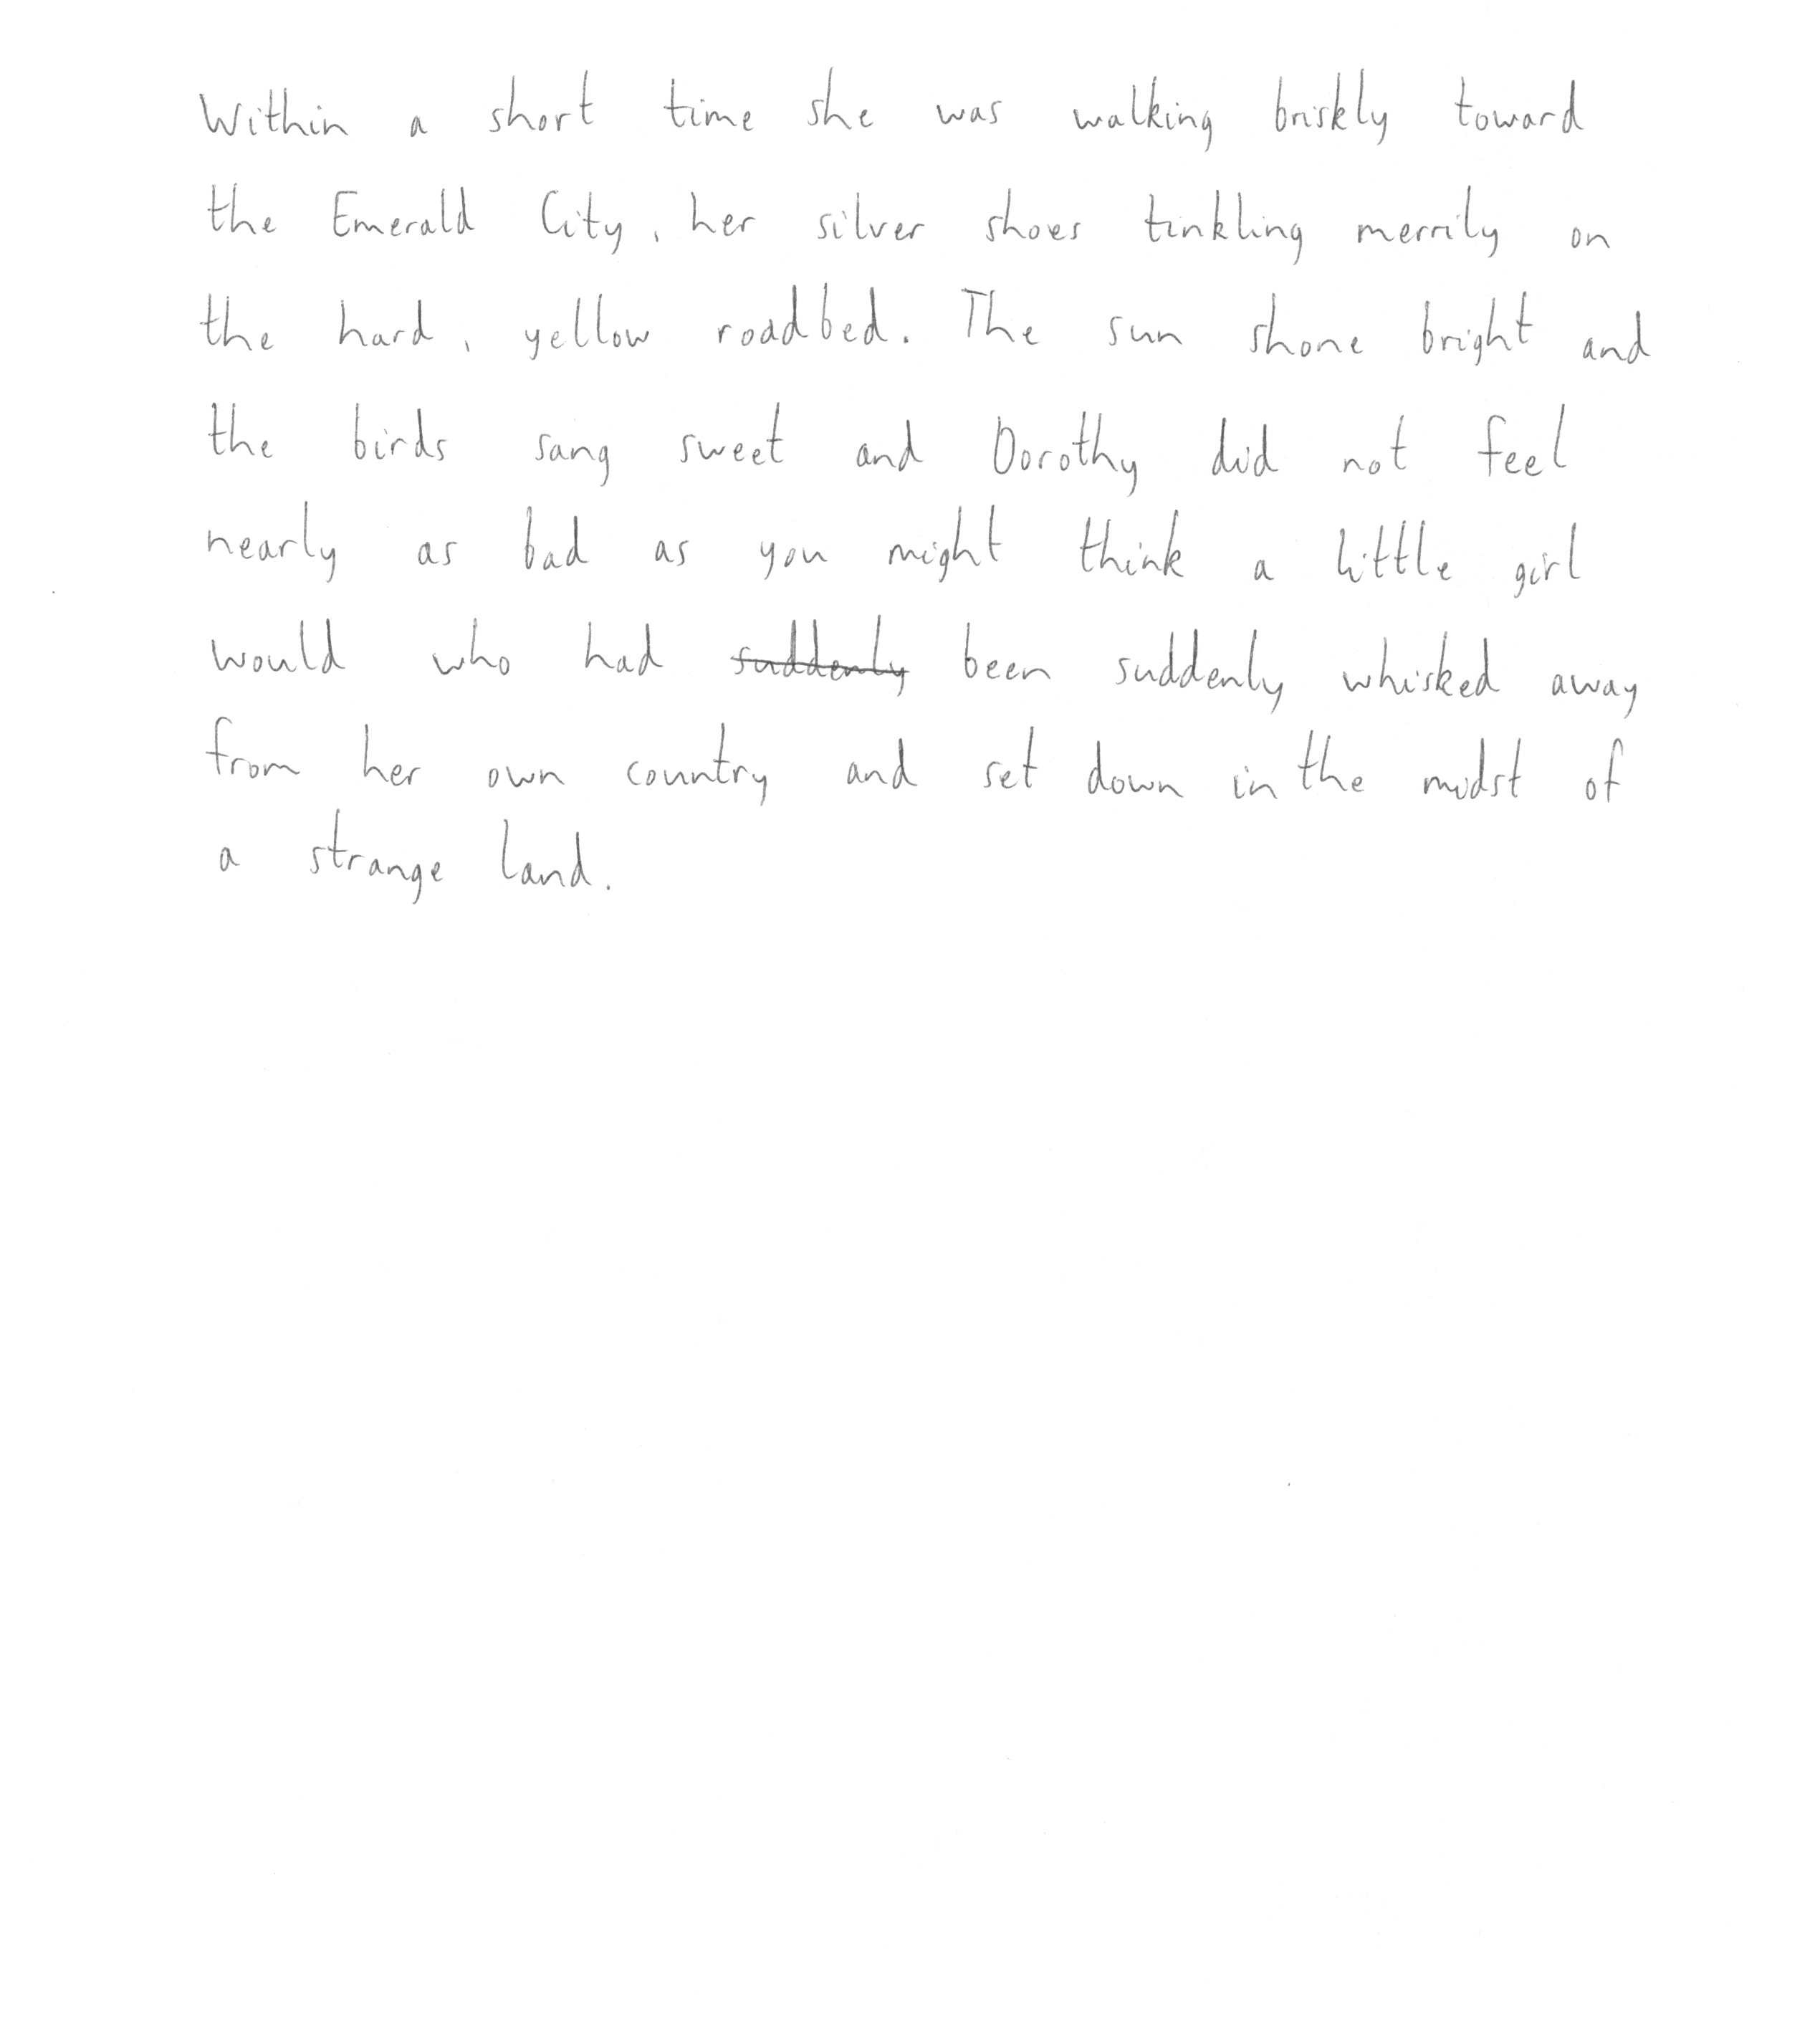 Within a short time she was walking briskly toward
the Emerald City, her silver shoes tinkling merrily on
the hard, yellow roadbed. The sun shone bright and
the birds sang sweet and Dorothy did not feel
nearly as bad as you might think a little girl
would who had suddenly been suddenly whisked away
from her own country and set down in the midst of
a strange land.